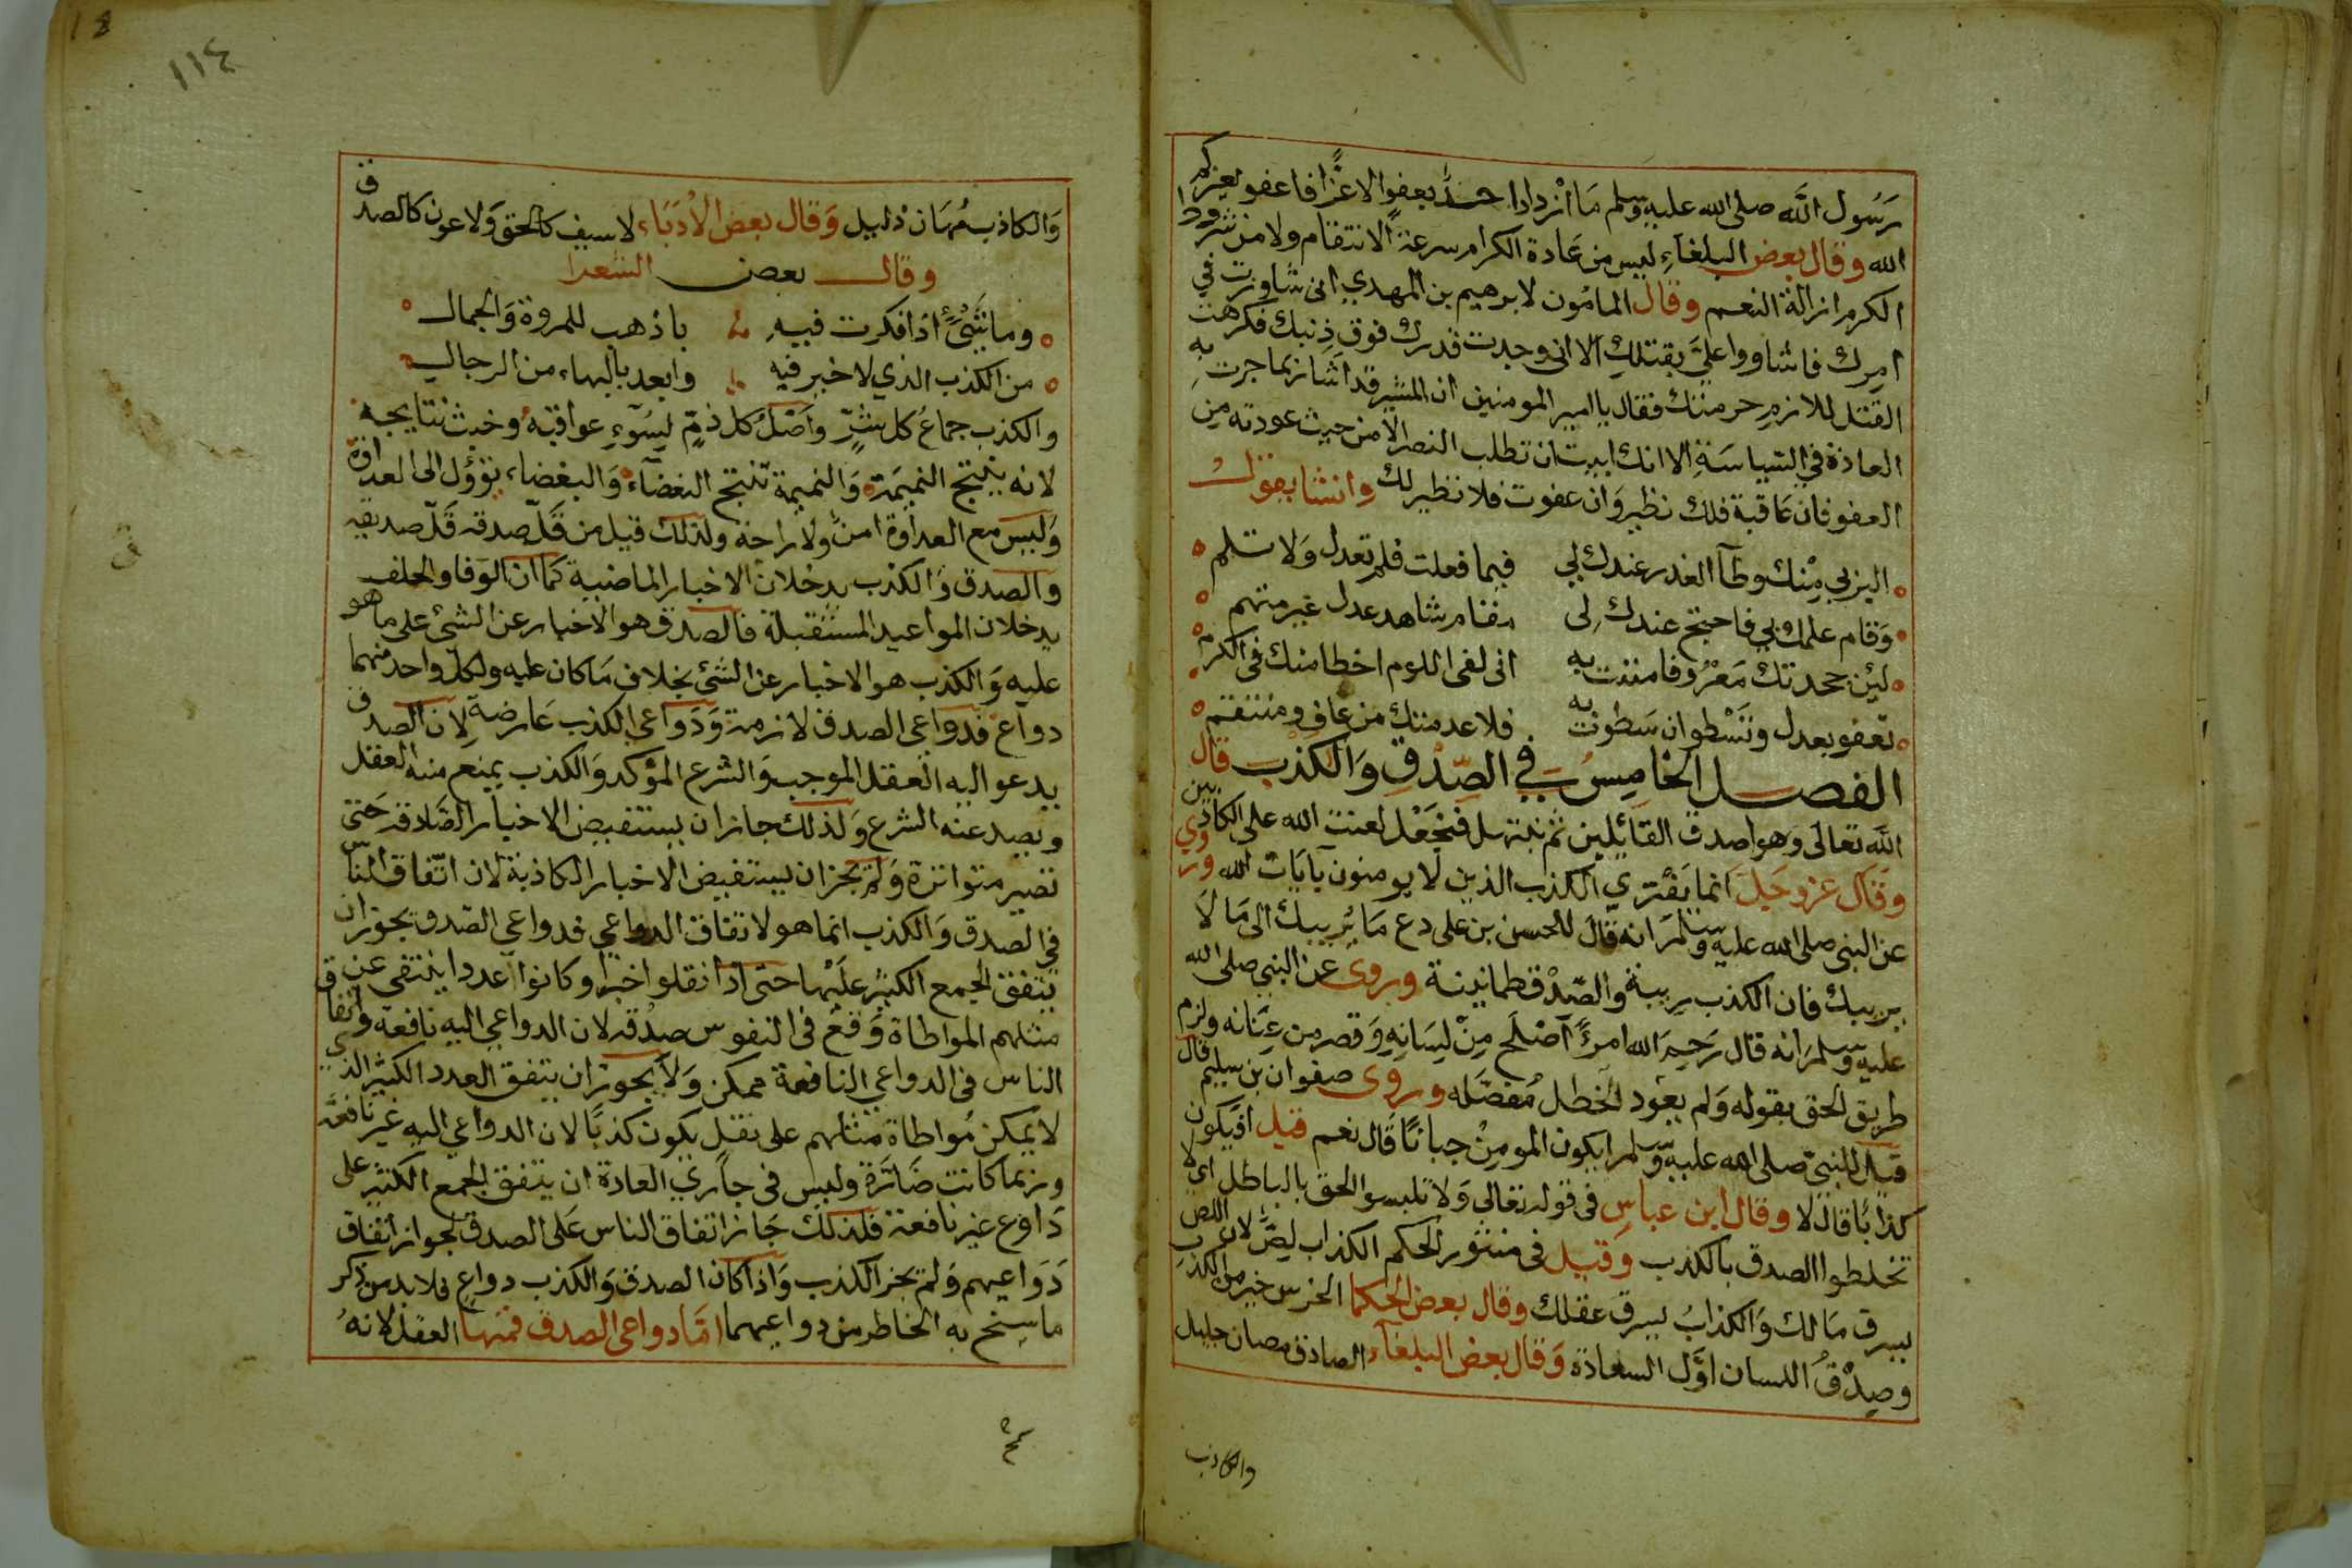 رَسُول اللَّه صلى الله عليه وسلم مَا ازداد احد بعفو الا عزًّا فاعفو يعزكم
الله وقال بعض البلغاءِ ليس من عَادة الكرام سرعة الانتقام ولا من شروط
الكرم ازالة النعم وقال المامُون لابرهيم بن المهدي انى شاورت في
امرك فاشاروا عليَّ بقتلك الا انى وجدت قدرك فوق ذنبك فكرهت
القتل للازم حرمتك فقال يا امير المومنين ان المشير قد اشار بما جرت به
العادة في السِياسَةِ الا انك ابيت ان تطلب النصر الا من حيث عودته من
العفو فان عَاقبة فلك نظير وَان عفوت فلا نظير لك وانشا يقول
البر بي مِنْك وطآ العذر عندك لي فيما فعلت فلم تعدل وَلا تلم
وَقام علمك بي فاحتج عندك لِى مقام شاهد عدل غير متهم
لئِن جحدتك مَعْرُوفا مننت به انى لفى اللوم احظا منك فى الكرم
تعفو بعدل وتَسْطو ان سَطوت به فلا عدمتك من عاف ومنتقم
الفصل الخامِسُ في الصِّدْقِ وَالكذْب قال
اللَّه تعالى وَهو اصدق القَائِلين ثم نبتهل فنجْعَل لعنت الله على الكاذبين
وَقَال عز وجَل انما يَفْتري الكذب الذين لا يومنون بآيَات الله وروي
عن النبى صلى الله عليه وسلم انه قال للحسن بن على دع مَا يُريبك الى مَا لَا
يريبك فان الكذب رِيبة والصِّدْق طمانينة وروى عن النبي صلى الله
عليه وسلم انه قال رَحِمَ الله امرءً اَصْلَح مِنْ لِسَانِهِ وَقصر من عِنَانه ولزم
طريق الحق بقوله وَلم يعود الخطل مُفصَله وروى صفوان بن سليم قال
قيل للنبيّ صلى الله عليه وسلم ايكون المومِنْ جبانًا قَال نعم قيل افيكون
كذابًا قال لا وقال ابن عباسٍ فى قوله تعَالى وَلا تلبسوا الحق بالباطل اي لا
تخلطوا الصدق بالكذب وقيل فى منثور الحكم الكذاب لِصّ لان اللص
يسرق مَالك وَالكذابُ يسرق عقلك وقال بعض الحكما الخرس خير من الكذب
وصِدْقُ اللسان اوَّل السعَادة وَقال بعض البلغآء الصادق مصان جليل
والكاذب
١١٤
وَالكاذب مُهَان ذليل وَقال بعض الأدَبَاء لا سيف كالحق وَلا عون كالصدق
وقال بعض الشعرا
وما شَىْءٌ اذا فكرت فيهِ باذهب للمروة وَالجمال
من الكذب الذي لا خير فيه وابعد بالبهاء من الرجال
والكذب جماعُ كل شرٍّ وأصْلُ كل ذمٍّ لِسُوءِ عواقبه وخبث نتايجه
لانه ينتج النميمَة وَالنميمة تنتج البغضآء وَالبغضاء تؤؤل الى العداوة
وَليسَ مع العداوة امن ولا راحة ولذلك قيل من قَلّ صدقه قَلّ صديقه
والصدق وَالكذب يدخلان الاخبار الماضية كما ان الوَفا والخلف
يدخلان المواعيد المستقبلة فالصدق هو الاخبار عن الشئ على ما هو
عليه وَالكذب هو الاخبار عن الشئ بخلاف مَا كان عليه ولكل واحد منهما
دواع فدواعى الصدق لازمة وَدَوَاعى الكذب عَارضة لِان الصدق
يدعو اليه العقل الموجب وَالشرع المؤكد وَالكذب يمنع منه العقل
ويصد عنه الشرع وَلذلك جاز ان يستفيض الاخبار الصَادقة حَتى
تصير متواترة وَلم يجز ان يستفيض الاخبار الكاذبة لان اتّفاق الناس
في الصدق وَالكذب انما هو لاتفاق الدواعي فدواعي الصّدق يجوز ان
يتفق الجمع الكثير عليْها حتى اذا نقلوا خبرًا وكانوا عددا ينتفى عن
مثلهم المواطاة وَقع فى النفوس صدُقه لان الدواعي اليه نافعة واتفاق
الناس فى الدواعي النافعة ممكن وَلا يجوز ان يتفق العدد الكثير الذي
لا يمكن مُواطاة مثلهم على نقل يكون كذبًا لان الدواعي اليه غير نافعة
وربما كانت ضَارَّة وليس فى جاري العادة ان يتفق الجمع الكثير على
دَاوع غير نافعة فلذلك جَاز اتفاق الناس عَلى الصدق لجواز اتفاق
دَوَاعيهم وَلم يجز الكذب وَاذا كان الصدق وَالكذب دواعٍ فلا بد من ذكر
ما سنح به الخاطر من دواعيهما امّا دواعى الصدق فمنها العقل لانهُ